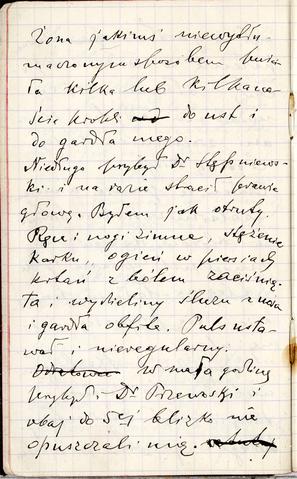 Żona jakimś niewytłu-
maczonym sposobem
ła kilka lub kilkana-
ście kropli do ust i
do gardła mego.
Niedługo przybył Dr Stępniews-
ki i na razie stracił prawie
głowę. Byłem jak otruty.
Ręce i nogi zimne, stężenie
karku, ogień w piersiach
krtań z bólem zaciśnię-
ta i wydzieliny śluzu z nosa
i gardła obfite. Puls usta-
wał i nieregularny.
W małą godzinę
przybył Dr Przewoski i
obaj do 5ej blizko nie
opuszczali mię.